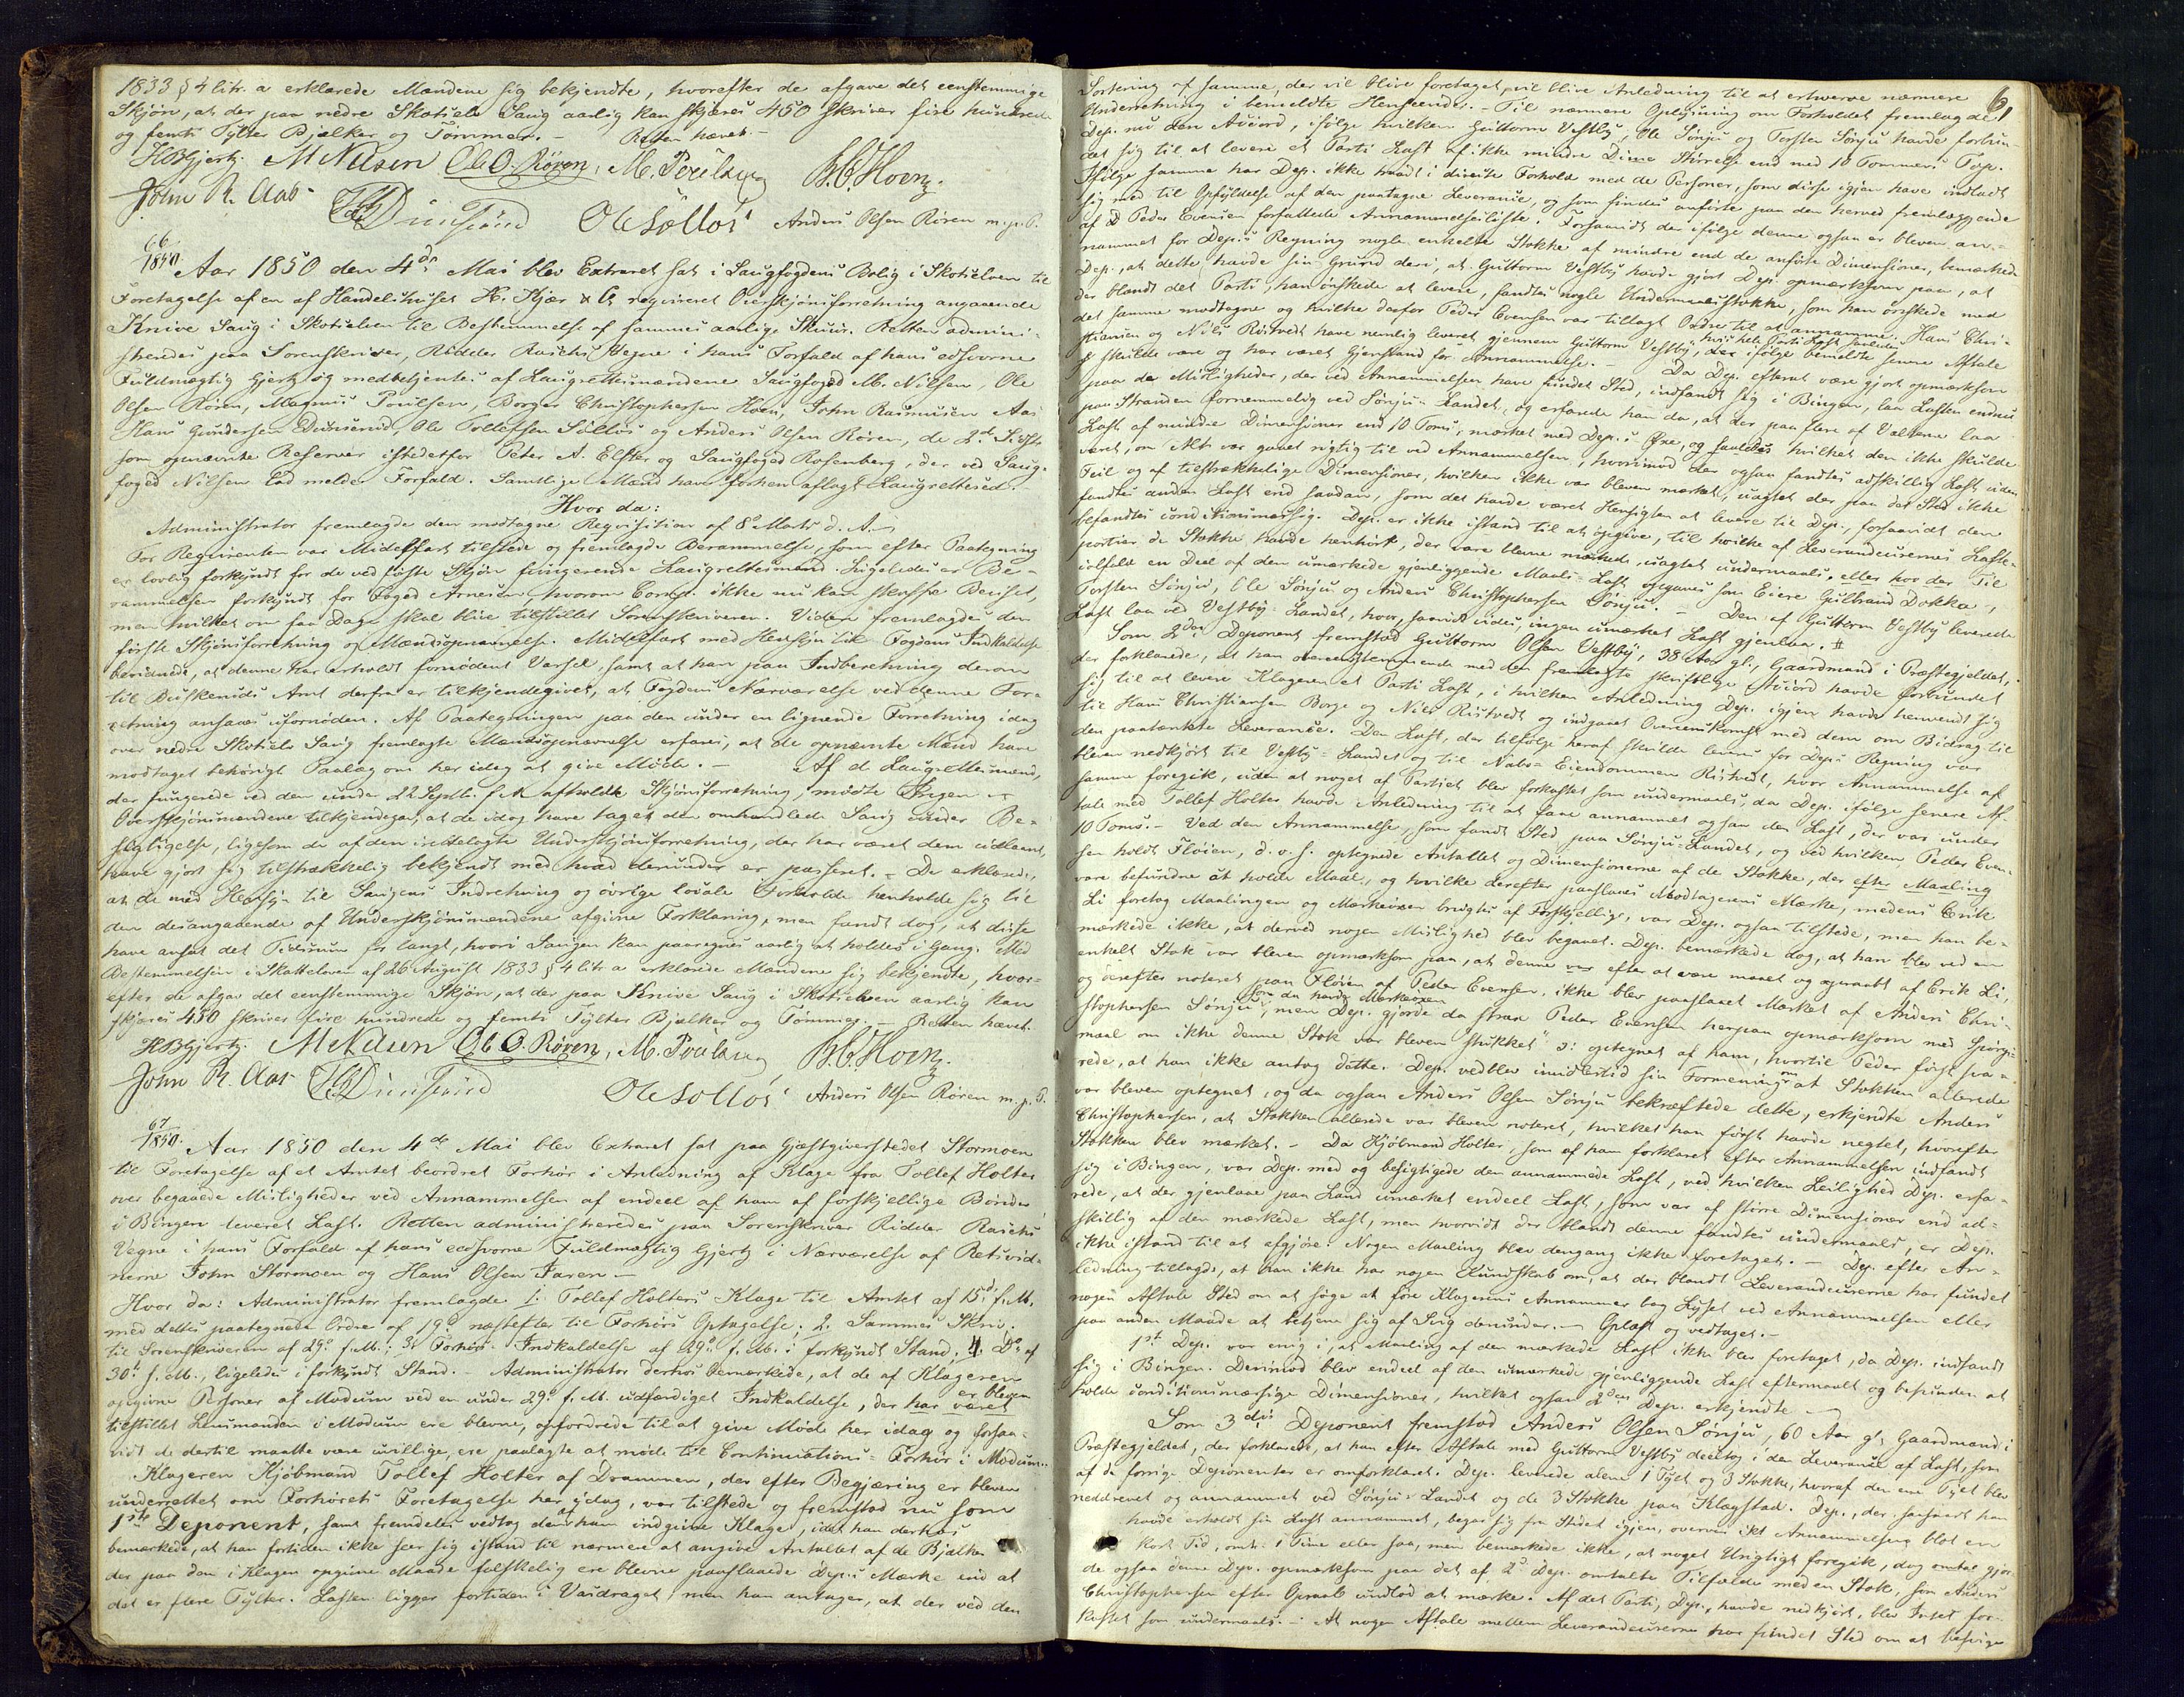 1833 § 4 litr. a erklærede Mændene sig bekjendte, hvorefter de afgave det eenstemmige
Skjøn, at der paa nedre Skotselv Saug aarlig kan skjæres 450 skriver fire hundrede
og femti Tylter Bjælker og Tømmer. — Retten hævet —
HBGjertz. M Nilsen Ole O. Røren, M. Poulsen B. C. Hoen.
John R. Aas Ole Sollos Anders Olsen Røren m. p. P.
66/1850. Aar 1850 den 4de Mai blev Extraret sat i Saugfogdens Bolig i Skotselven til
Foretagelse af en af Handelshuset H. Kjær & Co reqvireret Overskjønsforretning angaaende
Knive Saug i Skotselven til Bestemmelse af sammes aarlige Skuur. Retten admini-
streredes paa Sorenskriver, Ridder Raschs Vegne i hans Forfald af hans edsvorne
Fuldmægtig Gjertz og medbetjentes af Laugrettesmændene Saugfoged M. Nilsen, Ole
Olsen Røren, Magnus Poulsen, Borger Christophersen Hoen, John Rasmussen Aas
Hans Gundersen Dunserud, Ole Tollefsen Sollos og Anders Olsen Røren, de 2de Sidste
som opnævnte Reserver istedetfor Peter A. Elster og Saugfoged Rosenberg, der ved Saug-
foged Nilsen lod melde Forfald. Samtlige Mænd have forhen aflagt Laugrettesed. —
Hvor da:
Administrator fremlagde den modtagne Reqvisition af 8de Marts d. A.
For Reqvirenten var Midelfart tilstede og fremlagde Berammelse, som efter Paategning
er lovlig forkyndt for de ved første Skjøn fungerende Laugrettesmænd. Ligeledes er Be-
rammelsen forkyndt for Foged Arnesen hvorom Comp. ikke nu kan skaffe Beviset,
men hvilket om faa Dage skal blive tilstillet Sorenskriveren. Videre fremlagde den
første Skjønsforretning og Mændsopnævnelse. Midelfart med Hensyn til Fogdens Indkaldelse
bevidnede, at denne har erholdt fornødent Varsel, samt at han paa Indberetning derom
til Buskeruds Amt derfra er tilkjendegivet, at Fogdens Nærværelse ved denne For-
retning ansaaes ufornøden. Af Paategningen paa den under en lignende Forretning idag
over nedre Skotselv Saug fremlagte Mændsopnævnelse erfares, at de opnævnte Mænd have
modtaget behørigt Paalæg om her idag at give Møde. — Af de Laugrettesmænd,
der fungerede ved den under 22 Septbr. f. A. afholdte Skjønsforretning, mødte Ingen —
Overskjønsmændene tilkjendegav, at de idag have taget den omhandlede Saug under Be-
sigtigelse, ligesom de af den irettelagte Underskjønsforretning, der har været dem udlaant,
have gjort sig tilstrækkelig bekjendt med hvad derunder er passeret. — De erklærede,
at de med Hensyn til Saugens Indretning og øvrige lokale Forholde henholde sig til
den desangaaende af Underskjønsmændene afgivne Forklaring, men fandt dog, at disse
have ansat det Tidsrum for langt, hvori Saugen kan paaregnes aarlig at holdes i Gang. Med
Bestemmelsen i Skatteloven af 26 August 1833 § 4 litr a erklærede Mændene sig bekjendte, hvor-
efter de afgav det eenstemmige Skjøn, at der paa Knive Saug i Skotselven aarlig kan
skjæres 450 skriver fire hundrede og femti Tylter Bjælker og Tømmer. — Retten hævet.
HBGjertz. M Nilsen Ole O. Røren, M. Poulsen B. C. Hoen.
John R. Aas Ole Sollos Anders Olsen Røren m. p. P.
67/1850. Aar 1850 den 4de Mai blev Extraret sat paa Gjæstgiverstedet Stormoen
til Foretagelse af et Amtet beordret Forhør i Anledning af Klage fra Tollef Holter
over begaaede Misligheder ved Annammelsen af endeel af ham af forskjellige Bønder
i Bingen leveret Last. Retten administreredes paa Sorenskriver Ridder Raschs
Vegne i hans Forfald af hans edsvorne Fuldmægtig Gjertz i Nærværelse af Retsvid-
nerne John Stormoen og Hans Olsen Faren —
Hvor da: Administrator fremlagde 1. Tollef Holters Klage til Amtet af 15de f. M.
med dettes paategnede Ordre af 19de næstefter til Forhørs Optagelse; 2. Sammes Skriv.
til Sorenskriveren af 29de f. M.; 3. Forhørs-Indkaldelse af 29de f. M. i forkyndt Stand; 4. Do af
30te f. M., ligeledes i forkyndt Stand. — Administrator derhos bemærkede, at de af Klageren
opgivne Personer af Modum ved en under 29de f. M. udfærdiget Indkaldelse, der har været er bleven
tilstillet Lensmanden i Modum ere blevne opfordrede til at give Møde her idag og forsaa-
vidt de dertil maatte være uvillige, ere paalagte at møde til Continuations-Forhør i Modum.
Klageren Kjøbmand Tollef Holter af Drammen, der efter Begjæring er bleven
underrettet om Forhørets Foretagelse her idag, var tilstede og fremstod nu som
1ste Deponent, samt fremdeles vedtog den af ham indgivne Klage, idet han derhos
bemærkede, at han fortiden ikke seer sig istand til nærmere at angive Antallet af de Bjælker
der paa den i Klagen opgivne Maade falskelig ere blevne paaslaaede Dep.s Mærke end at
det er flere Tylter. Lasten ligger fortiden i Vasdraget, men han antager, at der ved den
6
Sortering af samme, der vil blive foretaget, vil blive Anledning til at erhverve nærmere
Underretning i bemeldte Henseende. — Til nærmere Oplysning om Forholdet fremlagde
Dep. nu den Accord, ifølge hvilken Guttorm Vestby, Ole Sønju og Torsten Sønju havde forbun-
det sig til at levere et Parti Last af ikke mindre Dime Størrelse end med 10 Tommers Top.
Ifølge samme har Dep. ikke staaet i directe Forhold med de Personer, som disse igjen have indladt
sig med til Opfyldelse af den paatagne Leverance, og som findes anførte paa den herved fremlæggende
af Peder Evensen forfattede Annammelsesliste. Forsaavidt der ifølge denne ogsaa er bleven an-
nammet for Dep.s Regning nogle enkelte Stokke af mindre end de anførte Dimensioner, bemærkede
Dep., at dette havde sin Grund deri, at Guttorm Vestby havde gjort Dep. opmærksom paa, at
der blandt det Parti, han ønskede at levere, fandtes nogle Undermaalsstokke, som han ønskede med
det samme modtagne og hvilke derfor Peder Evensen var tillagt Ordre til at annamme. Hans Chri-
stiansen og Nils Ristvedt have nemlig leveret gjennem Guttorm Vestby, hvis hele Parti Last saaledes ifølge bemeldte senere Aftale
skulde være og har været Gjenstand for Annammelse. — Da Dep. efterat være gjort opmærksom
paa de Misligheder, der ved Annammelsen have fundet Sted, indfandt sig i Bingen, laa Lasten endnu
paa Stranden fornemmelig ved Sønju-Landet, og erfarede han da, at der paa flere af Valtene laa
Last af mindre Dimensioner end 10 Toms, mærket med Dep.s Øxe, og saaledes hvilket den ikke skulde
været, om Alt var gaaet rigtig til ved Annammelsen, hvorimod der ogsaa fandtes adskillig Last uden
Feil og af tilstrækkelige Dimensioner, hvilken ikke var bleven mærket, uagtet der paa det Sted ikke
fandtes anden Last end saadan, som det havde været Hensigten at levere til Dep., forsaavidt den
befandtes conditionsmæssig. Dep. er ikke istand til at opgive, til hvilke af Leverandeurernes Laste-
portier de Stokke havde henhørt, der vare blevne mærkede, uagtet undermaals, eller hvor der Til
ialfald en Deel af den umærkede gjenliggende Maals-Last opgaves som Eiere Gulbrand Dokka,
Torsten Sønju, Ole Sønju og Anders Christophersen Sønju. — Den af Guttorm Vestby leverede
Last laa ved Vestby-Landet, hvor, saavidt vides, ingen umærket Last gjenlaa. #
Som 2den Deponent fremstod Guttorm Olsen Vestby, 38 Aar gl., Gaardmand i Præstegjeldet,
der forklarede, at han overensstemmende med den fremlagte skriftlige Accord havde forbundet
sig til at levere Klageren et Parti Last, i hvilken Anledning Dep. igjen havde henvendt sig
til Hans Christiansen Borge og Nils Ristvedt og indgaaet Overenskomst med dem om Bidrag til
den paatænkte Leverance. Den Last, der tilfølge heraf skulde leveres for Dep.s Regning var
bleven nedkjørt til Vestby-Landet og til Nabo-Eiendommen Ristvedt, hvor Annammelse af
samme foregik, uden at noget af Partiet blev forkastet som undermaals, da Dep. ifølge senere Af-
tale med Tollef Holter havde Anledning til at faae annammet ogsaa den Last, der var under
10 Toms. — Ved den Annammelse, som fandt Sted paa Sønju-Landet, og ved hvilken Peder Even-
sen holdt Fløien, d. v. s. optegnede Antallet og Dimensionerne af de Stokke, der efter Maaling
vare befundne at holde Maal, og hvilke derefter paasloges Modtagerens Mærke, medens Erik
Li foretog Maalingen og Mærkeøxen brugtes af Forskjellige, var Dep. ogsaa tilstede, men han be-
mærkede ikke, at derved nogen Mislighed blev begaaet. Dep. bemærkede dog, at han blev ved en
enkelt Stok var bleven opmærksom paa, at denne var efter at være maalt og opraabt af Erik Li,
og derefter noteret paa Fløien af Peder Evensen, ikke blev paaslaaet Mærket af Anders Chri-
stophersen Sønju, som da havde Mærkeøxen men Dep. gjorde da strax Peder Evensen herpaa opmærksom med Spørgs-
maal om ikke denne Stok var bleven "stukket" ɔ: optegnet af ham, hvortil Peder først sva-
rede, at han ikke antog dette. Dep. vedblev imidlertid sin Formening om at Stokken allerede
var bleven optegnet, og da ogsaa Anders Olsen Sønju bekræftede dette, erkjendte Anders
Christophersen, at Stokken allerede var bleven noteret, hvilket han først havde negtet, hvorefter
Stokken blev mærket. — Da Kjøbmand Holter, som af ham forklaret efter Annammelsen indfandt
sig i Bingen, var Dep. med og besigtigede den annammede Last, ved hvilken Leilighed Dep. erfa-
rede, at der gjenlaae paa Land umærket endeel Last, som var af større Dimensioner end ad-
skillig af den mærkede Last, men hvorvidt der blandt denne fandtes undermaals, er Dep.
ikke istand til at afgjøre. Nogen Maaling blev dengang ikke foretaget. — Dep. efter An-
ledning tillagde, at han ikke har nogen Kundskab om, at der blandt Leverandeurerne har fundet
nogen Aftale Sted om at søge at føre Klagerens Annammer bag Lyset ved Annammelsen eller
paa anden Maade at betjene sig af Svig derunder. — Oplæst og vedtaget. —
1ste Dep. var enig i, at Maaling af den mærkede Last ikke blev foretaget, da Dep. indfandt
sig i Bingen. Derimod blev endeel af den umærkede gjenliggende Last eftermaalt og befunden at
holde conditionsmæssige Dimensioner, hvilket ogsaa 2den Dep. erkjendte —
Som 3die Deponent fremstod Anders Olsen Sønju, 60 Aar gl. Gaardmand i
Præstegjeldet, der forklarede, at han efter Aftale med Guttorm Vestby deeltog i den Leverance af Last, som
af de forrige Deponenter er omforklaret. Dep. leverede alene 1 Tylt og 3 Stokke, hvoraf den ene Tylt blev
neddrevet og annammet ved Sønju-Landet og de 3 Stokke paa Klogstad. Dep., der saasnart han
havde erholdt sin Last annammet, begav sig fra Stedet igjen, overvar ikke Annammelsen blot en
kort Tid, omtr. 1 Time eller saa, men bemærkede ikke, at noget Urigtigt foregik, dog omtal gjor-
de ogsaa denne Dep. opmærksom paa det af 2d Dep. omtalte Tilfælde med en Stok, som Anders
Christophersen efter Opraab undlod at mærke. Af det Parti, Dep. havde nedkjørt, blev Intet for-
kastet som undermaals. — At nogen Aftale mellem Leverandeurerne har fundet Sted om at besvige